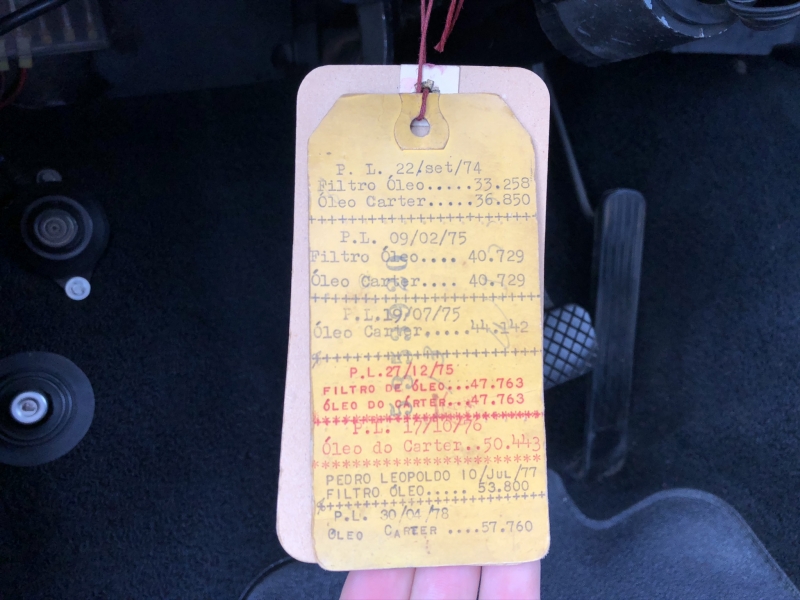 P. L. 22/set/74
Filtro Óleo.....33.258
Óleo Carter.....36.850
+++++++++++++++++++++++
P.L. 09/02/75
Filtro Óleo.... 40.729
Óleo Carter.... 40.729
+++++++++++++++++++++++
P.L.19/07/75
Óleo Carter.....44.142
+++++++++++++++++++++++
P.L.27/12/75
FILTRO DE ÓLEO...47.763
ÓLEO DO CÁRTER...47.763
***********************
P.L. 17/10/76
Óleo do Carter..50.443
***********************
PEDRO LEOPOLDO 10/Jul/77
FILTRO ÓLEO..... 53.800
+++++++++++++++++++++++
P.L. 30/04/78
ÓLEO CARTER ....57.760